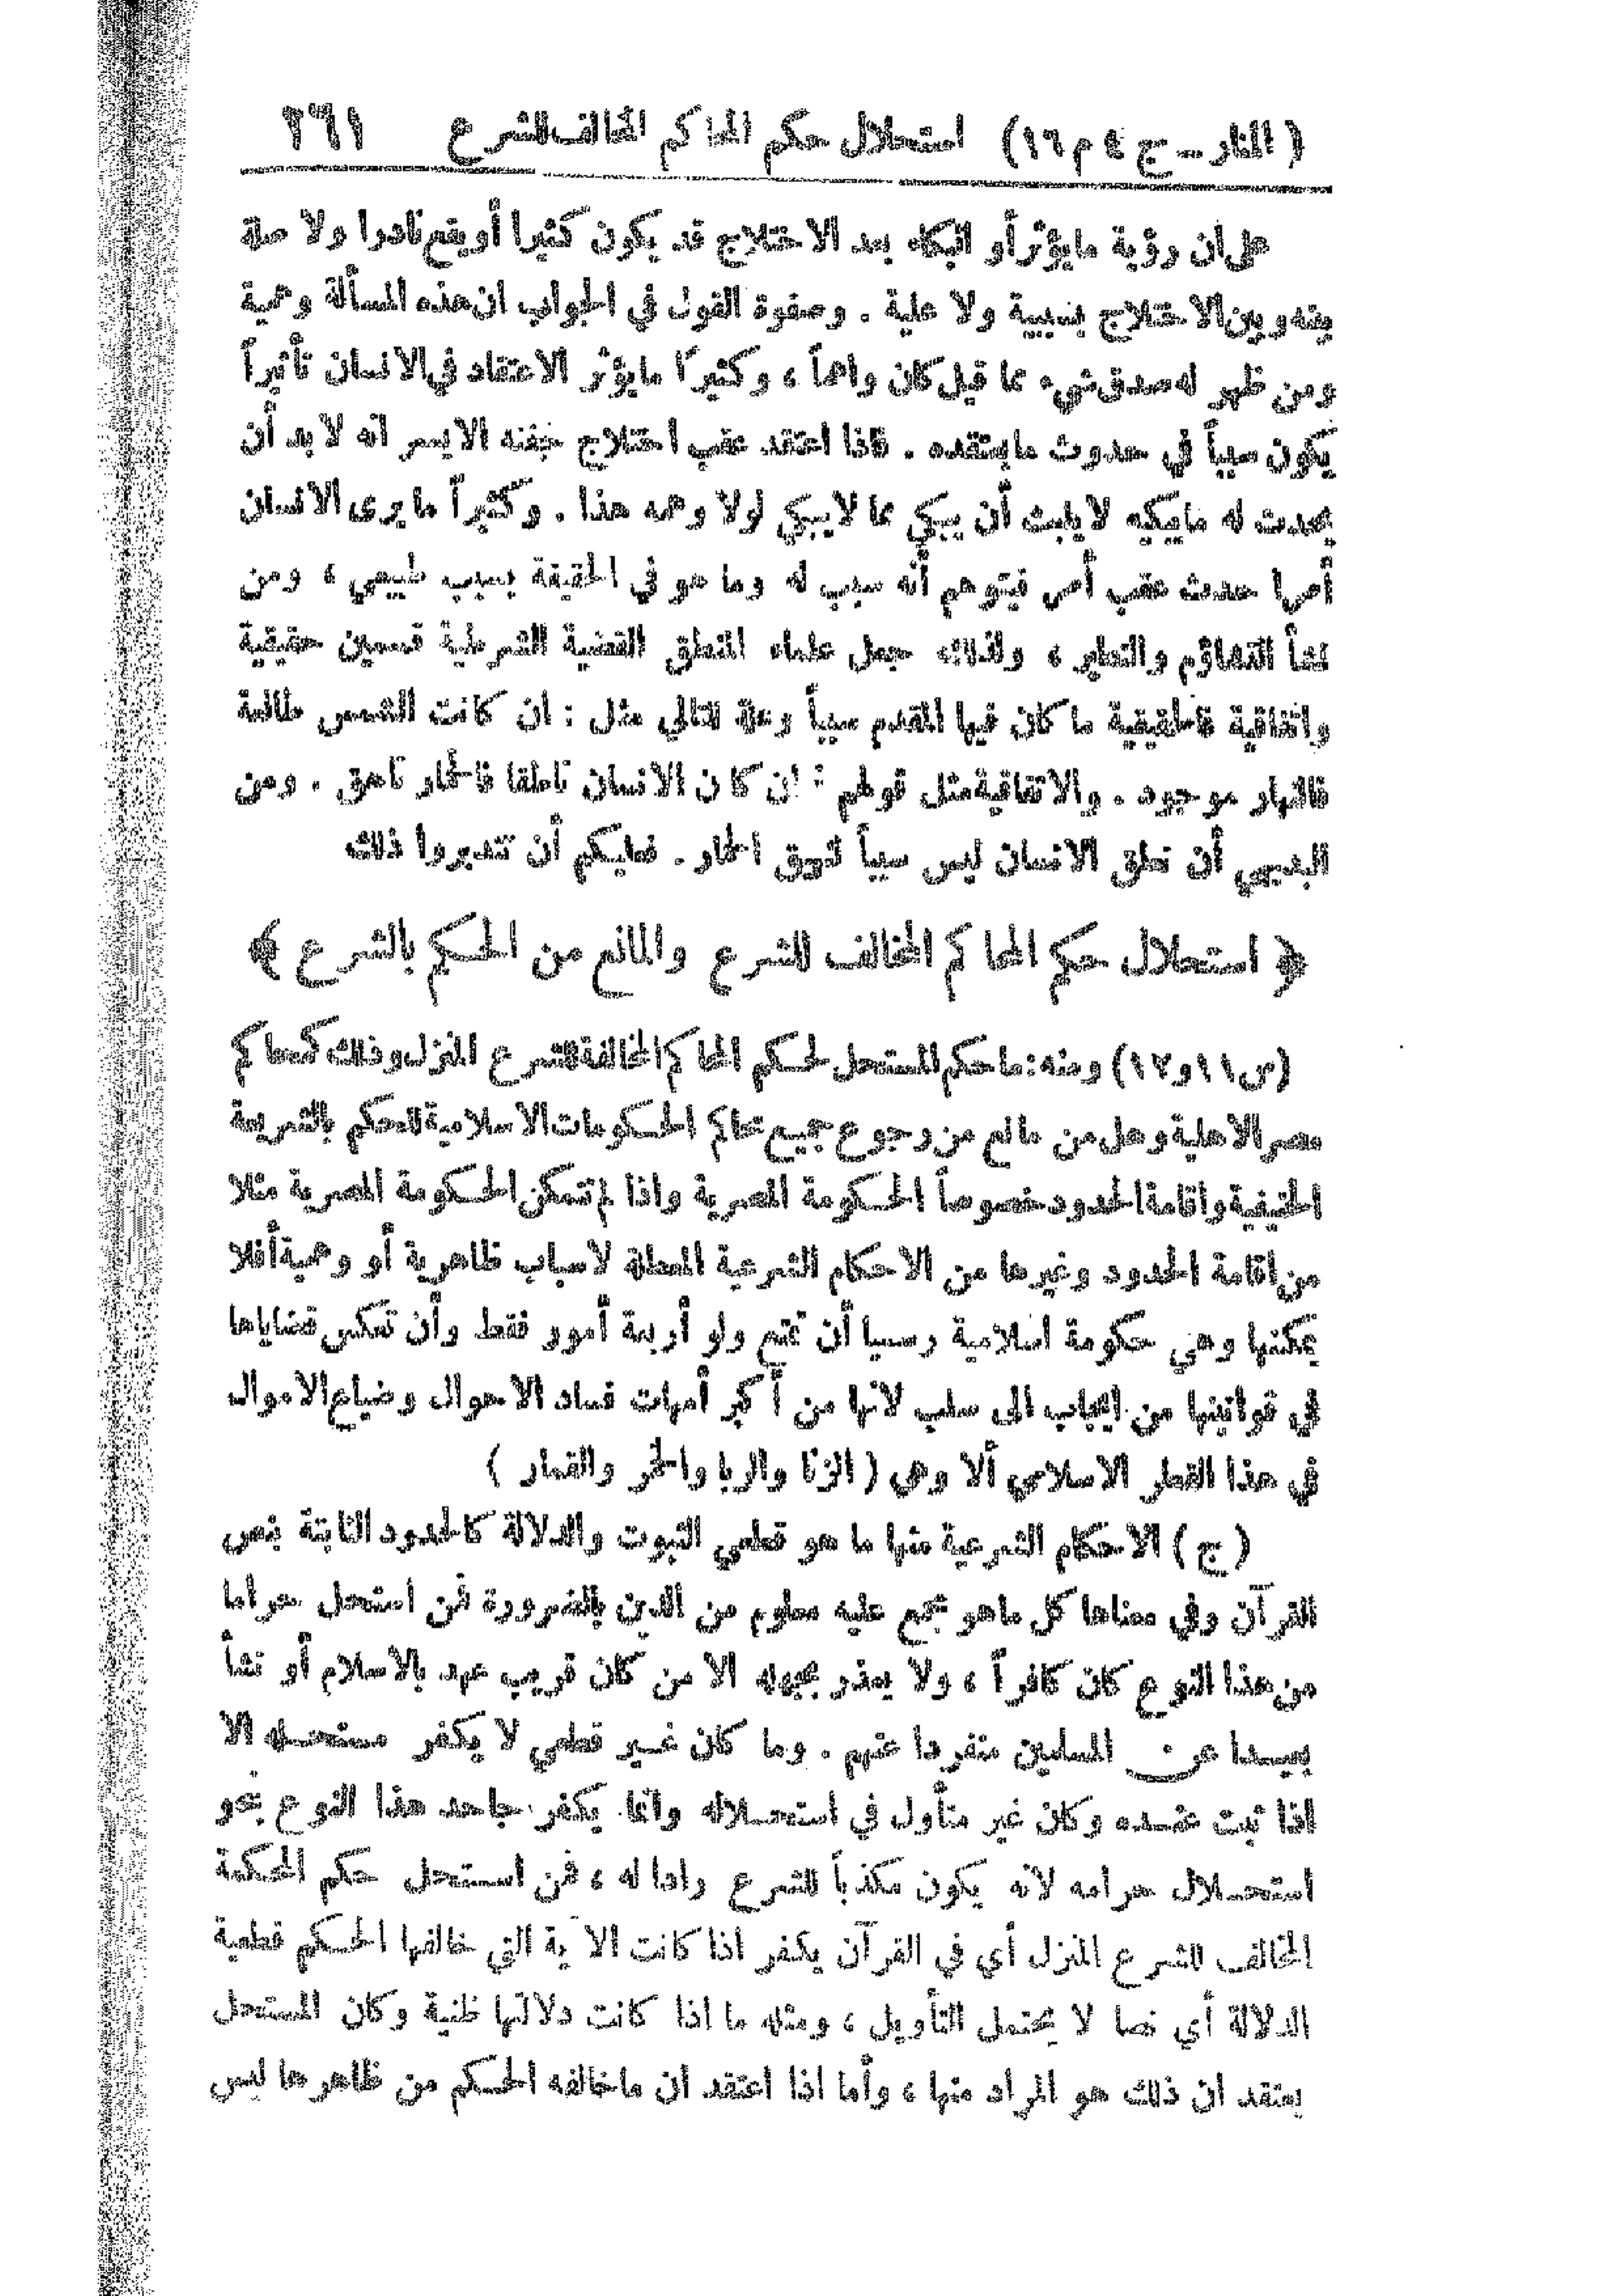 ( المنار – ج ٤ م ١٦ ) استحلال حكم المحاكم المخالف للشرع ٢٦١
على ان رؤية ما يؤثر أو البكاء بعد الاختلاج قد يكون كثيرا أو يقع نادرا ولا صلة
بينه وبين الاختلاج بسببية ولا علية . وصفوة القول في الجواب ان هذه المسألة وهمية
ومن ظهر له صدق شيء مما قيل كان واهماً ، وكثيراً ما يؤثر الاعتقاد في الانسان تأثيراً
يكون سبباً في حدوث ما يعتقده . فاذا اعتقد عقب اختلاج جفنه الايسر انه لا بد أن
يحدث له ما يبكيه لا يلبث أن يبكي مما لا يبكي لولا وهمه هذا . وكثيراً ما يرى الانسان
أمرا حدث عقب أمر فيتوهم أنه سبب له وما هو في الحقيقة بسبب طبيعي ، ومن
نشأ التشاؤم والتطير ، ولذلك جعل علماء المنطق القضية الشرطية قسمين حقيقية
واتفاقية فالحقيقية ما كان فيها المقدم سبباً وعلة للتالي مثل : ان كانت الشمس طالعة
فالنهار موجود . والاتفاقية مثل قولهم : ان كان الانسان ناطقا فالحمار ناهق . ومن
البديهي أن نطق الانسان ليس سبباً لنهق الحمار . فعليكم أن تتدبروا ذلك
﴿ استحلال حكم المحاكم المخالف للشرع والمانع من الحكم بالشرع ﴾
(س ١١ و ١٢) ومنه : ما حكم المستحل لحكم المحاكم المخالفة للشرع المنزل وذلك كمحاكم
مصر الاهلية وهل من مانع من رجوع جميع محاكم الحكومات الاسلامية للحكم بالشريعة
الحنيفية واقامة الحدود خصوصاً الحكومة المصرية واذا لم تتمكن الحكومة المصرية مثلا
من اقامة الحدود وغيرها من الاحكام الشرعية المعطلة لاسباب ظاهرية أو وهمية أفلا
يمكنها وهي حكومة اسلامية رسميا أن تمنع ولو أربعة أمور فقط وأن تعكس قضاياها
في قوانينها من إيجاب الى سلب لانها من أكبر أمهات فساد الاحوال وضياع الاموال
في هذا القطر الاسلامي ألا وهي ( الزنا والربا والخمر والقمار )
( ج ) الاحكام الشرعية منها ما هو قطعي الثبوت والدلالة كالحدود الثابتة بنص
القرآن وفي معناها كل ما هو مجمع عليه معلوم من الدين بالضرورة فمن استحل حراما
من هذا النوع كان كافراً ، ولا يعذر بجهله الا من كان قريب عهد بالاسلام أو نشأ
بعيدا عن المسلمين منفردا عنهم . وما كان غير قطعي لا يكفر مستحله الا
اذا ثبت عنده وكان غير متأول في استحلاله وانما يكفر جاحد هذا النوع بنحو
استحلال حرامه لانه يكون مكذباً للشرع رادا له ، فمن استحل حكم المحكمة
المخالف للشرع المنزل أي في القرآن يكفر اذا كانت الآية التي خالفها الحكم قطعية
الدلالة أي نصا لا يحتمل التأويل ، ومثله ما اذا كانت دلالتها ظنية وكان المستحل
يعتقد ان ذلك هو المراد منها ، وأما اذا اعتقد ان ما خالفه الحكم من ظاهرها ليس